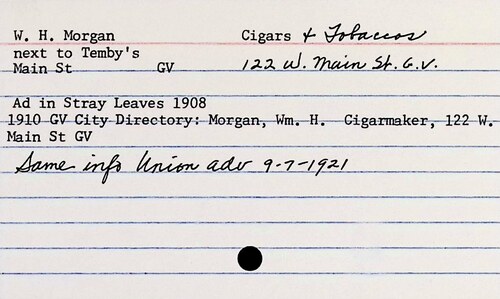 W. H. Morgan Cigars & Tobaccos
next to Temby's
Main St GV 122 W. Main St. G.V.
Ad in Stray Leaves 1908
1910 GV City Directory: Morgan, Wm. H. Cigarmaker, 122 W.
Main St GV
Same info Union adv 9-7-1921